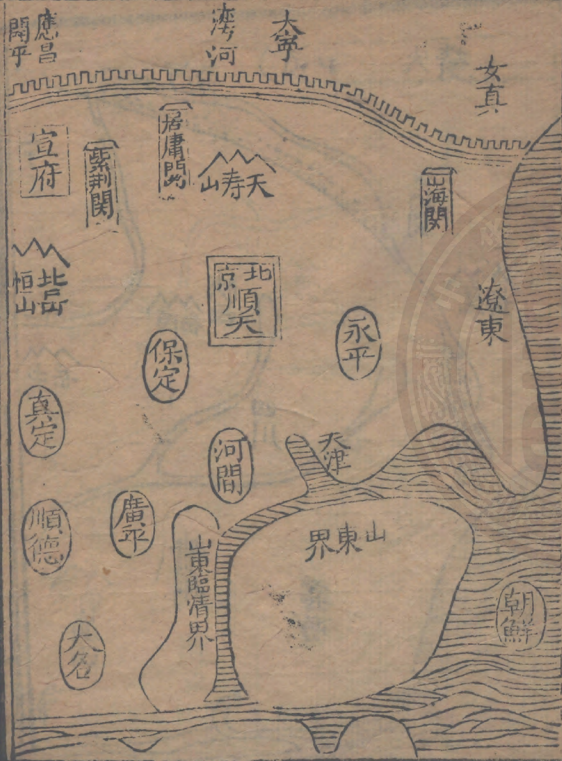 應昌
開平
灤河
大寧
女真
宣府
紫荆関
居庸関
天寿山
山海関
北岳
恒山
北京
順天
遼東
保定
永平
真定
河間
天津
順德
廣平
山東臨清界
山東界
朝鮮
大名